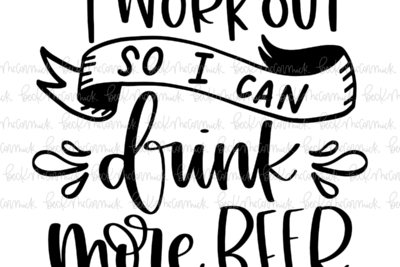 I WORK OUT
SO I CAN
drink
more BEER